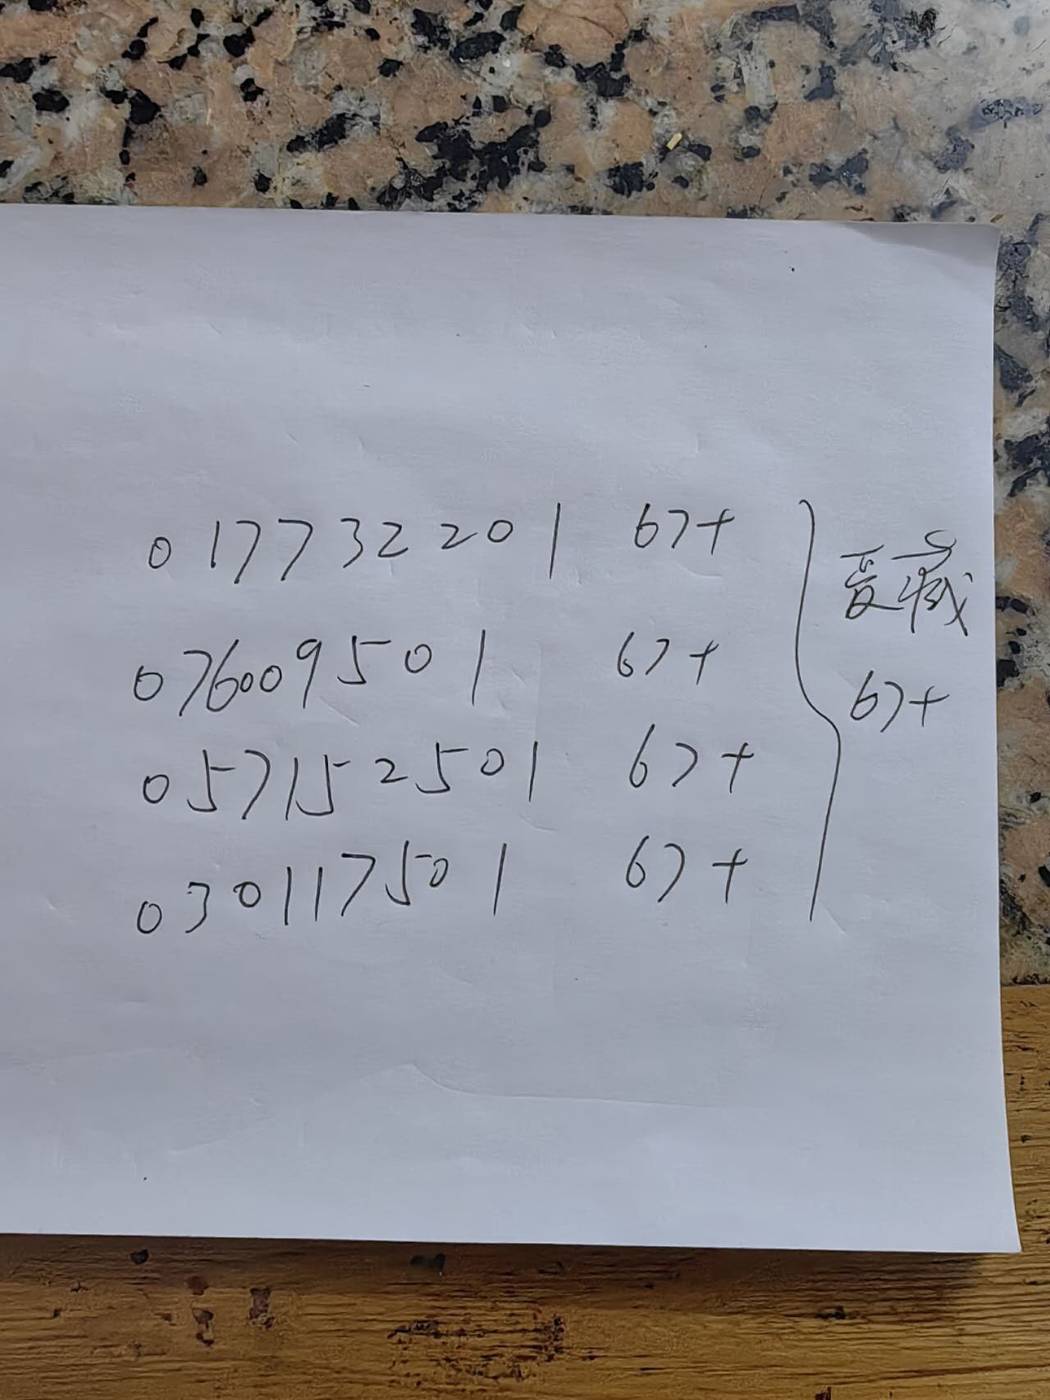 017732201 67+
076009501 67+
057152501 67+
030117501 67+
爱藏
67+